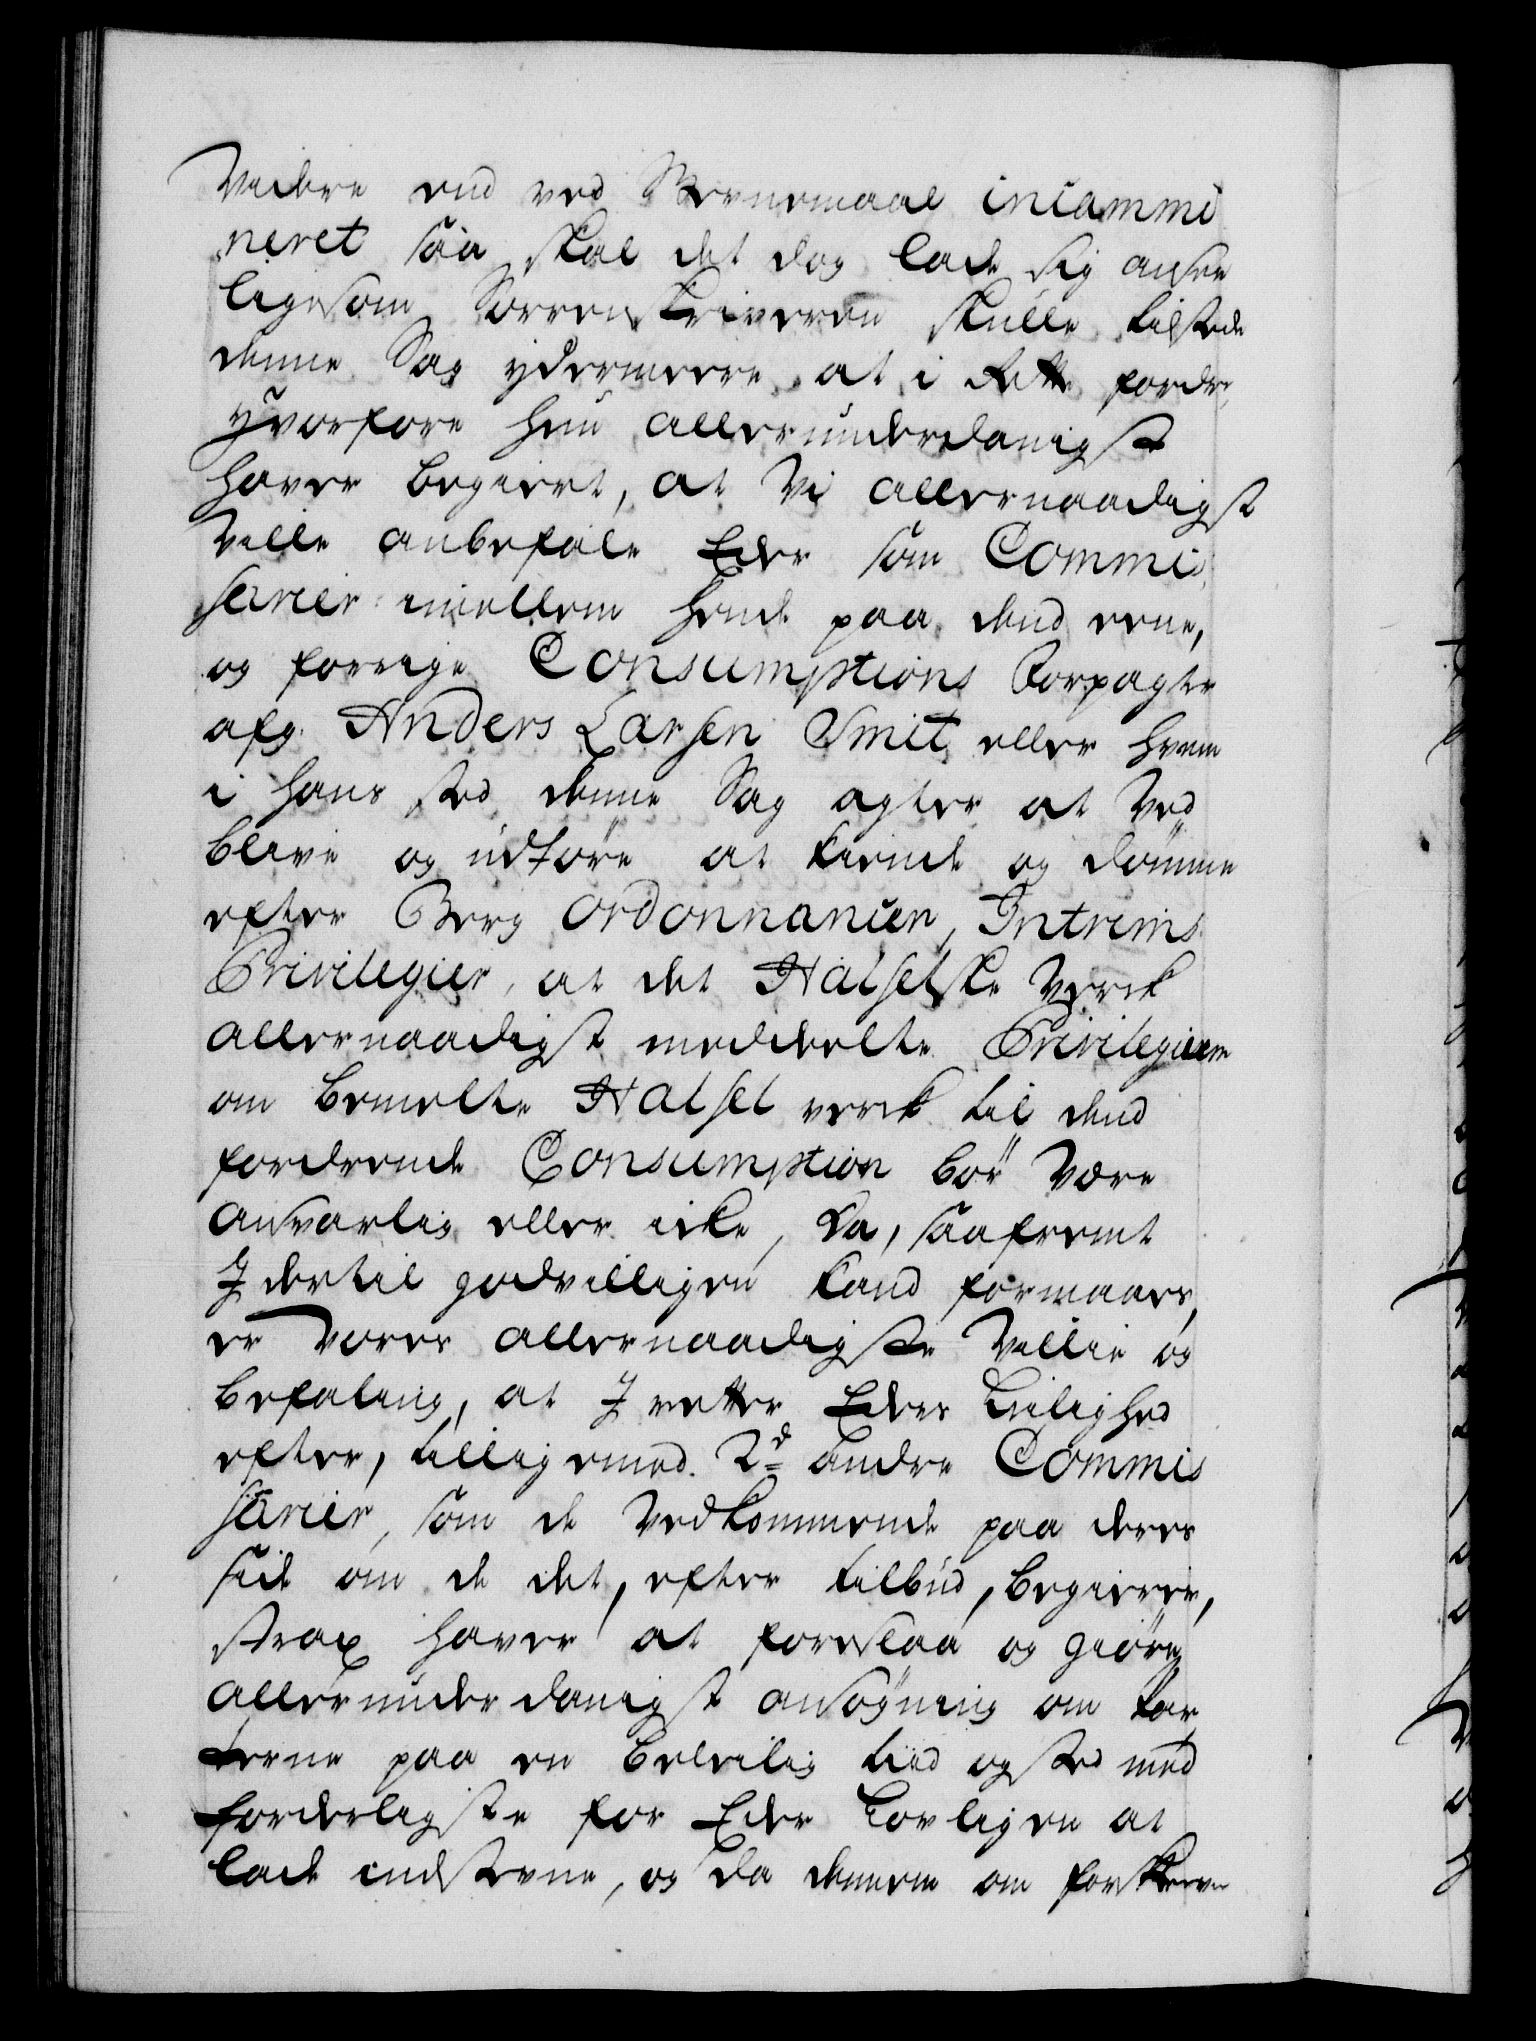 Videre end ved Stevnemaal incammi
neret saa skal det dog lade sig ansee
ligesom Sorrenskriveren skulle tilstede
denne Sag ydermeere at i Rette fordre,
hvorfore hun allerunderdanigst
haver begiert, at Vi allernaadigst
Ville anbefale Eder som Commi
sarier imellem hende paa dend eene,
og forrige Consumptions Forpagter
afg. Anders Larsen Smit eller hvem
i hans sted denne Sag agter at Ved
blive og udføre at kiende og dømme
efter Berg Ordonnancen, Intrims
Privilegier, at det Hatselske Verck
allernaadigst meddeelte Privilegier
om bemelte Hatsel verck til dend
fordrende Consumption bør være
ansvarlig eller icke, Da, saafremt
I dertil godvilligen kand formaaes,
er Vores allernaadigste Villie og
befaling, at I retter Eders Leilighed
efter, tilligemed 2de andre Commis
sarier, som de Vedkommende paa deres
side om de det, efter tilbud, begierer,
strax haver at foreslaa og giøre
allerunderdanigst ansøgning om Par
terne paa en beleilig tiid og sted med
forderligste for Eder Lovligen at
lade indstevne, og da dennem om forskrevne